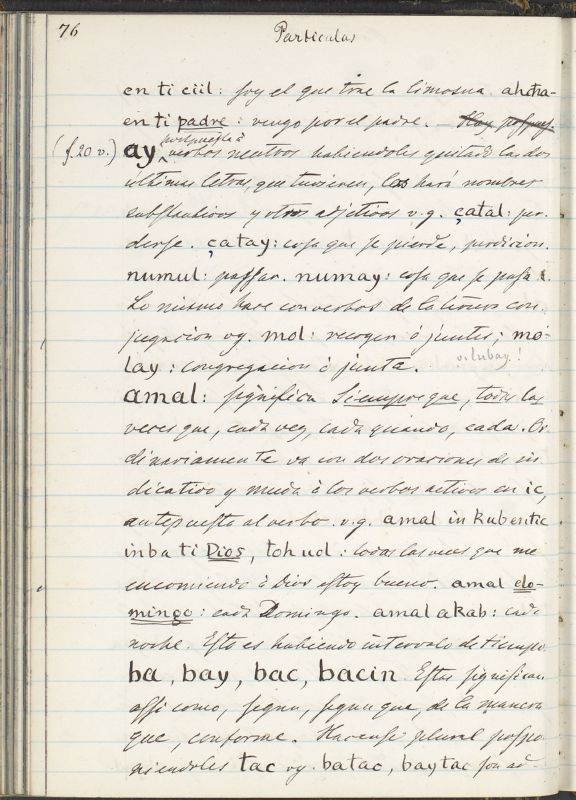 76 Particulas
en ti ciil: soy el que trae la limosna. ahtha-
en ti padre: vengo por el padre. —
(f. 20 v.) ay pospuesta à verbos neutros habiendoles quitado las dos
ultimas letras que tuvieren, los hará nombres
substantivos y otros adjetivos v.g. çatal: per-
derse. çatay: cosa que se pierde, perdicion.
numul: passar. numay: cosa que se passa.
Lo mismo hace con verbos de la tercera con-
jugacion vg. mol: recoger ó juntar; mo-
lay: congregacion ó junta. v. lubay!
amal: significa siempre que, todas las
veces que, cada vez, cada quando, cada. Or-
dinariamente va con dos oraciones de in-
dicativo y muda à los verbos activos en ic,
antepuesta al verbo. v.g. amal in kubentic
inba ti Dios, toh uol: todas las veces que me
encomiendo à Dios estoy bueno. amal do-
mingo: cada Domingo. amal akab: cada
noche. Esto es habiendo intervalo de tiempo.
ba, bay, bac, bacin. Estas significan
assi como, segun, segun que, de la manera
que, conforme. Hacense plural pospo-
niendoles tac vg. batac, baytac son ad-